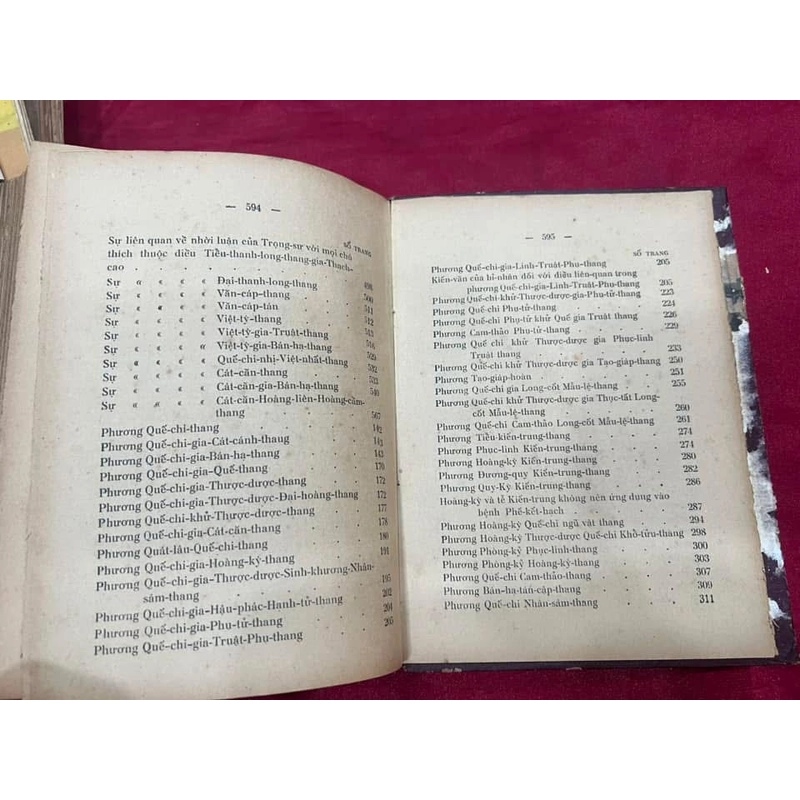 — 594 —
SỐ TRANG
Sự liên quan về nhời luận của Trọng-sư với mọi chú
thích thuộc điều Tiểu-thanh-long-thang-gia-Thạch-
cao . . . . . . . . . 498
Sự « « « « Đại-thanh-long-thang . 500
Sự « « « « Văn-cáp-thang . . 511
Sự « « « « Văn-cáp-tán . . 512
Sự « « « « Việt-tỳ-thang . . 513
Sự « « « « Việt-tỳ-gia-Truật-thang . 516
Sự « « « « Việt-tỳ-gia-Bán-hạ-thang . 529
Sự « « « « Quế-chi-nhị-Việt-nhất-thang . 532
Sự « « « « Cát-căn-thang . . 523
Sự « « « « Cát-căn-gia-Bán-hạ-thang . 540
Sự « « « « Cát-căn-Hoàng-liên-Hoàng-cầm-
thang . . . . 567
Phương Quế-chi-thang . . . . 142
Phương Quế-chi-gia-Cát-cánh-thang . . . 143
Phương Quế-chi-gia-Bán-hạ-thang . . . 143
Phương Quế-chi-gia-Quế-thang . . . 170
Phương Quế-chi-gia-Thược-dược-thang . . 172
Phương Quế-chi-gia-Thược-dược-Đại-hoàng-thang . 172
Phương Quế-chi-khử-Thược-dược-thang . . 177
Phương Quế-chi-gia-Cát-căn-thang . . . 178
Phương Quát-lâu-Quế-chi-thang . . . 180
Phương Quế-chi-gia-Hoàng-kỳ-thang . . . 191
Phương Quế-chi-gia-Thược-dược-Sinh-khương-Nhân-
sâm-thang . . . . . 195
Phương Quế-chi-gia-Hậu-phác-Hạnh-tử-thang . 202
Phương Quế-chi-gia-Phu-tử-thang . . . 204
Phương Quế-chi-gia-Truật-Phu-thang . . . 205
— 595 —
SỐ TRANG
Phương Quế-chi-gia-Linh-Truật-Phu-thang . . 205
Kiến-văn của hi-nhân đối với điều liên-quan trong
phương Quế-chi-gia-Linh-Truật-Phu-thang . 205
Phương Quế-chi-khử-Thược-dược-gia-Phu-tử-thang . 223
Phương Quế-chi Phụ-tử-thang . . . 224
Phương Quế-chi Phụ-tử khử Quế gia Truật thang . 226
Phương Cam-thảo Phu-tử-thang . . . 229
Phương Quế-chi khử Thược-dược gia Phục-linh
Truật thang . . . . 233
Phương Quế-chi khử Thược-dược gia Tạo-giáp-thang . 250
Phương Tạo-giáp-hoàn . . . . 251
Phương Quế-chi gia Long-cốt Mẫu-lệ-thang . . 255
Phương Quế-chi khử Thược-dược gia Thục-tất Long-
cốt Mẫu-lệ-thang . . . . 260
Phương Quế-chi Cam-thảo Long-cốt Mẫu-lệ-thang . 261
Phương Tiểu-kiến-trung-thang . . . 274
Phương Phục-linh Kiến-trung-thang . . . 274
Phương Hoàng-kỳ Kiến-trung-thang . . . 280
Phương Đương-quy Kiến-trung-thang . . . 282
Phương Quy-Kỳ Kiến-trung-thang . . . 286
Hoàng-kỳ và tễ Kiến-trung không nên ứng dụng vào
bệnh Phế-kết-hạch . . . . 287
Phương Hoàng-kỳ Quế-chi ngũ vật thang . . 294
Phương Hoàng-kỳ Thược-dược Quế-chi Khổ-tửu-thang . 298
Phương Phòng-kỷ Phục-linh-thang . . . 300
Phương Phòng-kỷ Hoàng-kỳ-thang . . . 303
Phương Quế-chi Cam-thảo-thang . . . 307
Phương Bán-hạ-tán-cập-thang . . . 309
Phương Quế-chi Nhân-sâm-thang . . . 311